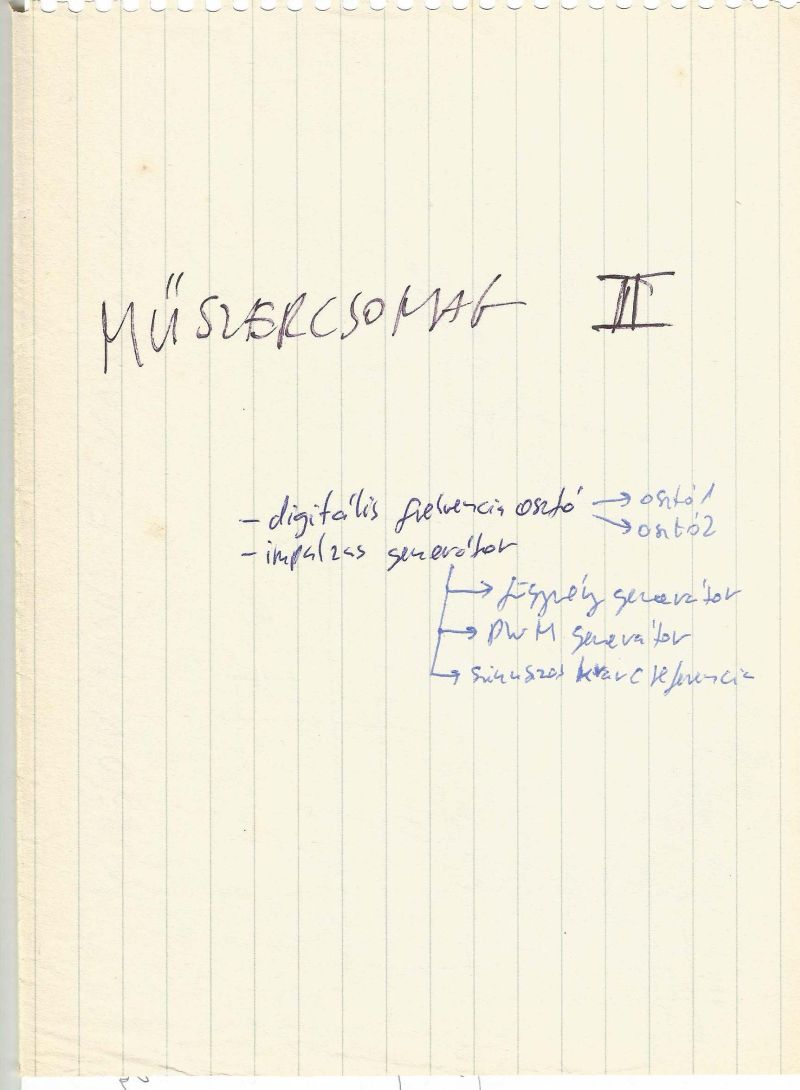 MŰSZERCSOMAG III
- digitális frekvencia osztó → osztó1
→ osztó2
- impulzus generátor
→ függvény generátor
→ PWM generátor
→ szinuszos kvarc referencia